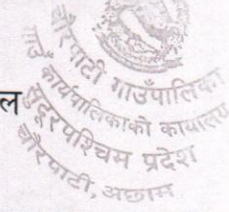 चौरपाटी गाउँपालिका
गाउँ कार्यपालिकाको कार्यालय
सुदूरपश्चिम प्रदेश
चौरपाटी, अछाम
ल